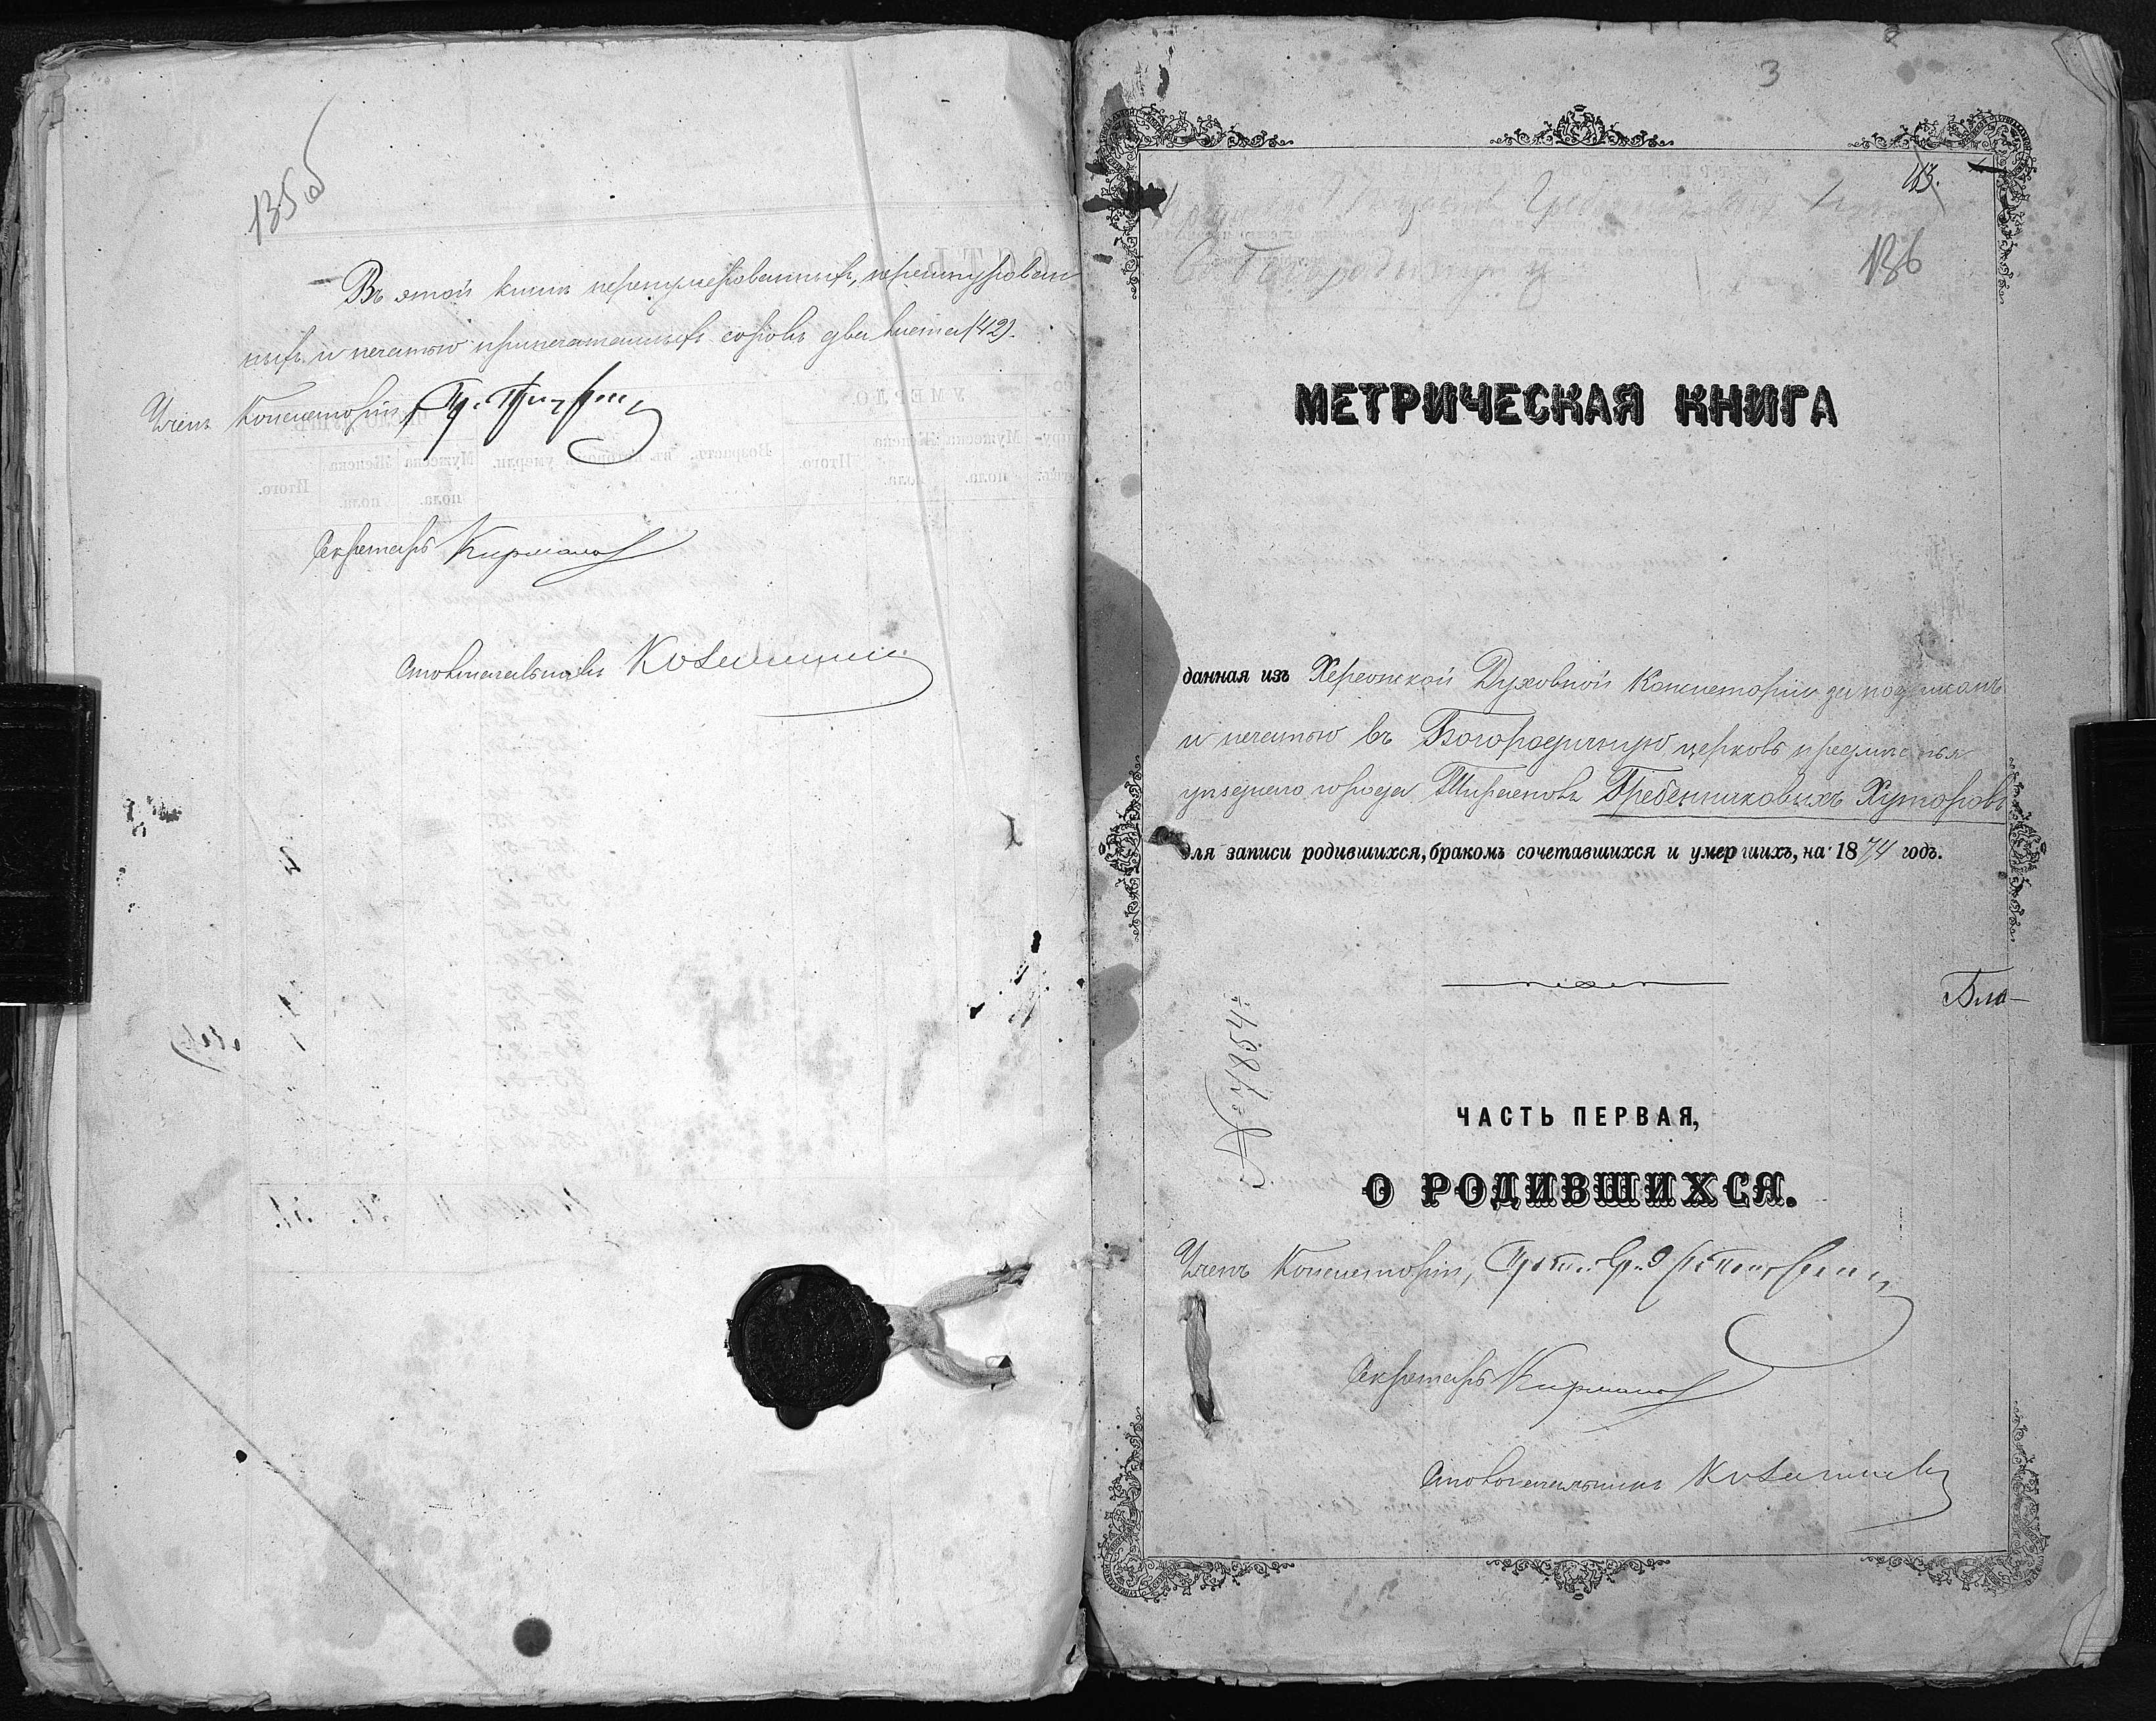 135об
Въ этой книгѣ перенумерованныхъ, прошнурован
ныхъ и печатью припечатанныхъ сорокъ два листа (42).
Членъ Консисторіи,
Секретарь
Столоначальникъ
3
43.
136
МЕТРИЧЕСКАЯ КНИГА
данная изъ Херсонской Духовной Консисторіи за подписомъ
и печатью въ Богородичную церковь предмѣстья
уѣзднаго города Тирасполя Гребенниковыхъ Хуторовъ
для записи родившихся, бракомъ сочетавшихся и умершихъ, на 1874 годъ.
Бла-
№ 7854
ЧАСТЬ ПЕРВАЯ,
О РОДИВШИХСЯ.
Членъ Консисторіи,
Секретарь
Столоначальникъ